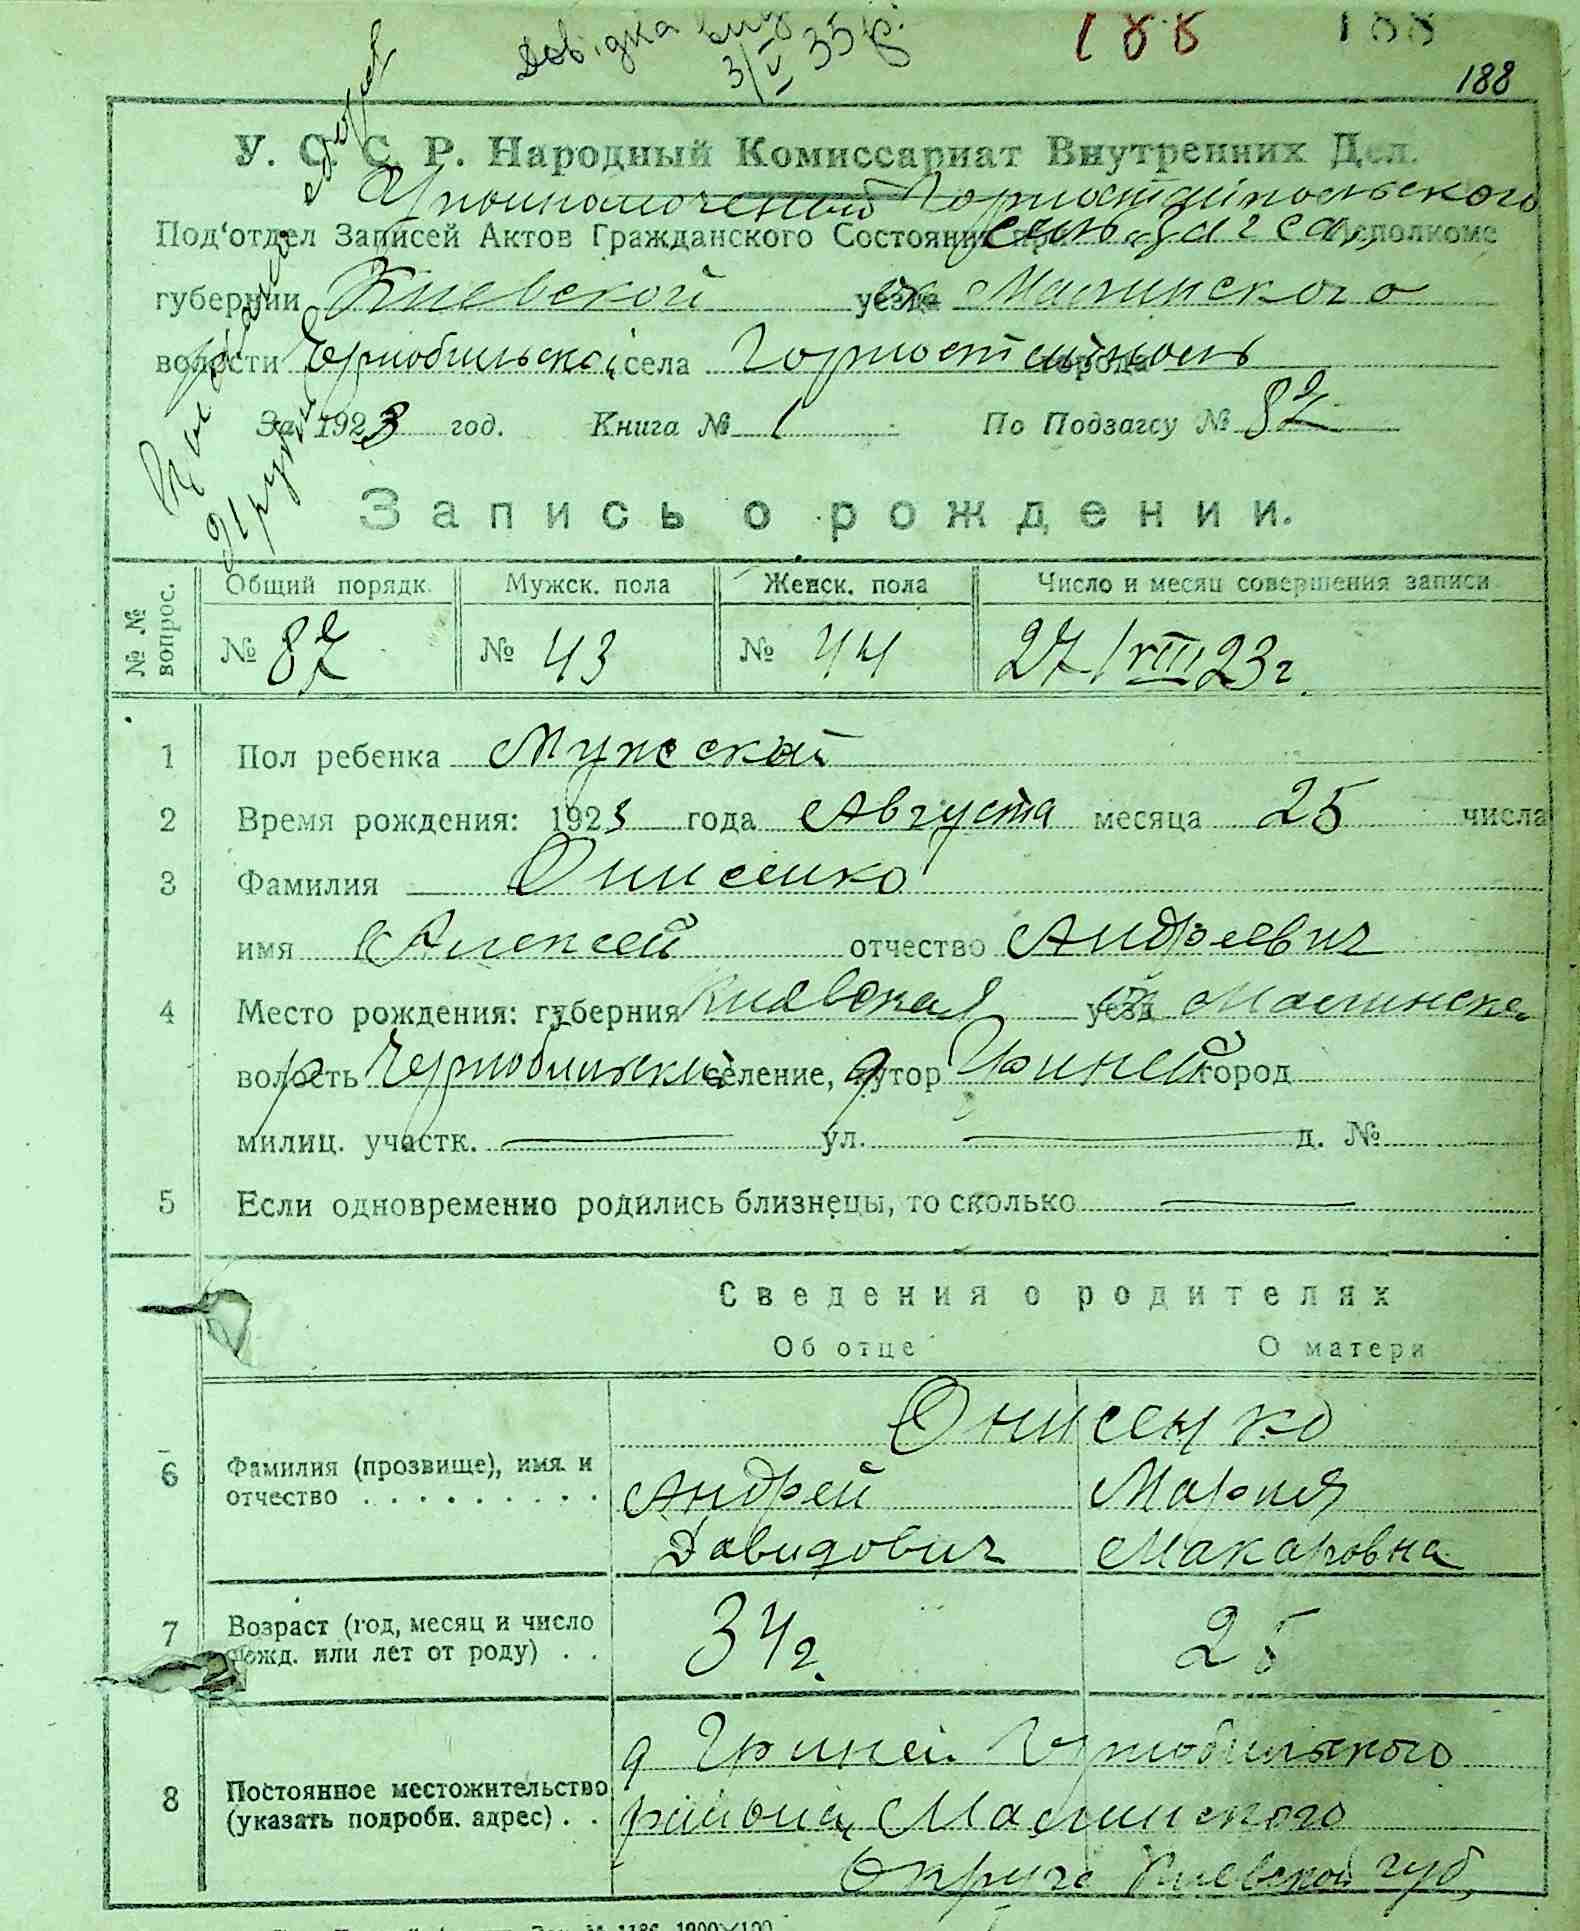 Довідка
3/V 35 р.
188 188
188
У. С. С. Р. Народный Комиссариат Внутренних Дел.
Уполномоченый Горностайпольского
Под'отдел Записей Актов Гражданского Состояния при сель „Загса„ Исполкоме
губернии Киевской уезда Малинского
волости Чернобильской села Горностайполь города
За 1923 год. Книга № 1 По Подзагсу № 87
Запись о рождении.
№ № вопрос. Общий порядк. Мужск. пола Женск. пола Число и месяц совершения записи
№ 87 № 43 № 44 27/VIII 23 г.
1 Пол ребенка Мужской
2 Время рождения: 1923 года Августа месяца 25 числа
3 Фамилия Онисенко
имя Алексей отчество Андреевич
4 Место рождения: губерния Киевская уезд Малинске
волость Чернобильский селение, хутор д Фриней город
милиц. участк. ул. д. №
5 Если одновременно родились близнецы, то сколько
Сведения о родителях
Об отце О матери
Онисенко
6 Фамилия (прозвище), имя и отчество . . . . . . . . . . Андрей Мария
Давидович Макаровна
7 Возраст (год, месяц и число рожд. или лет от роду) . . 34 г. 25
8 Постоянное местожительство (указать подробн. адрес) . . д Чернобильского
района, Малинского
Округа Киевской губ.